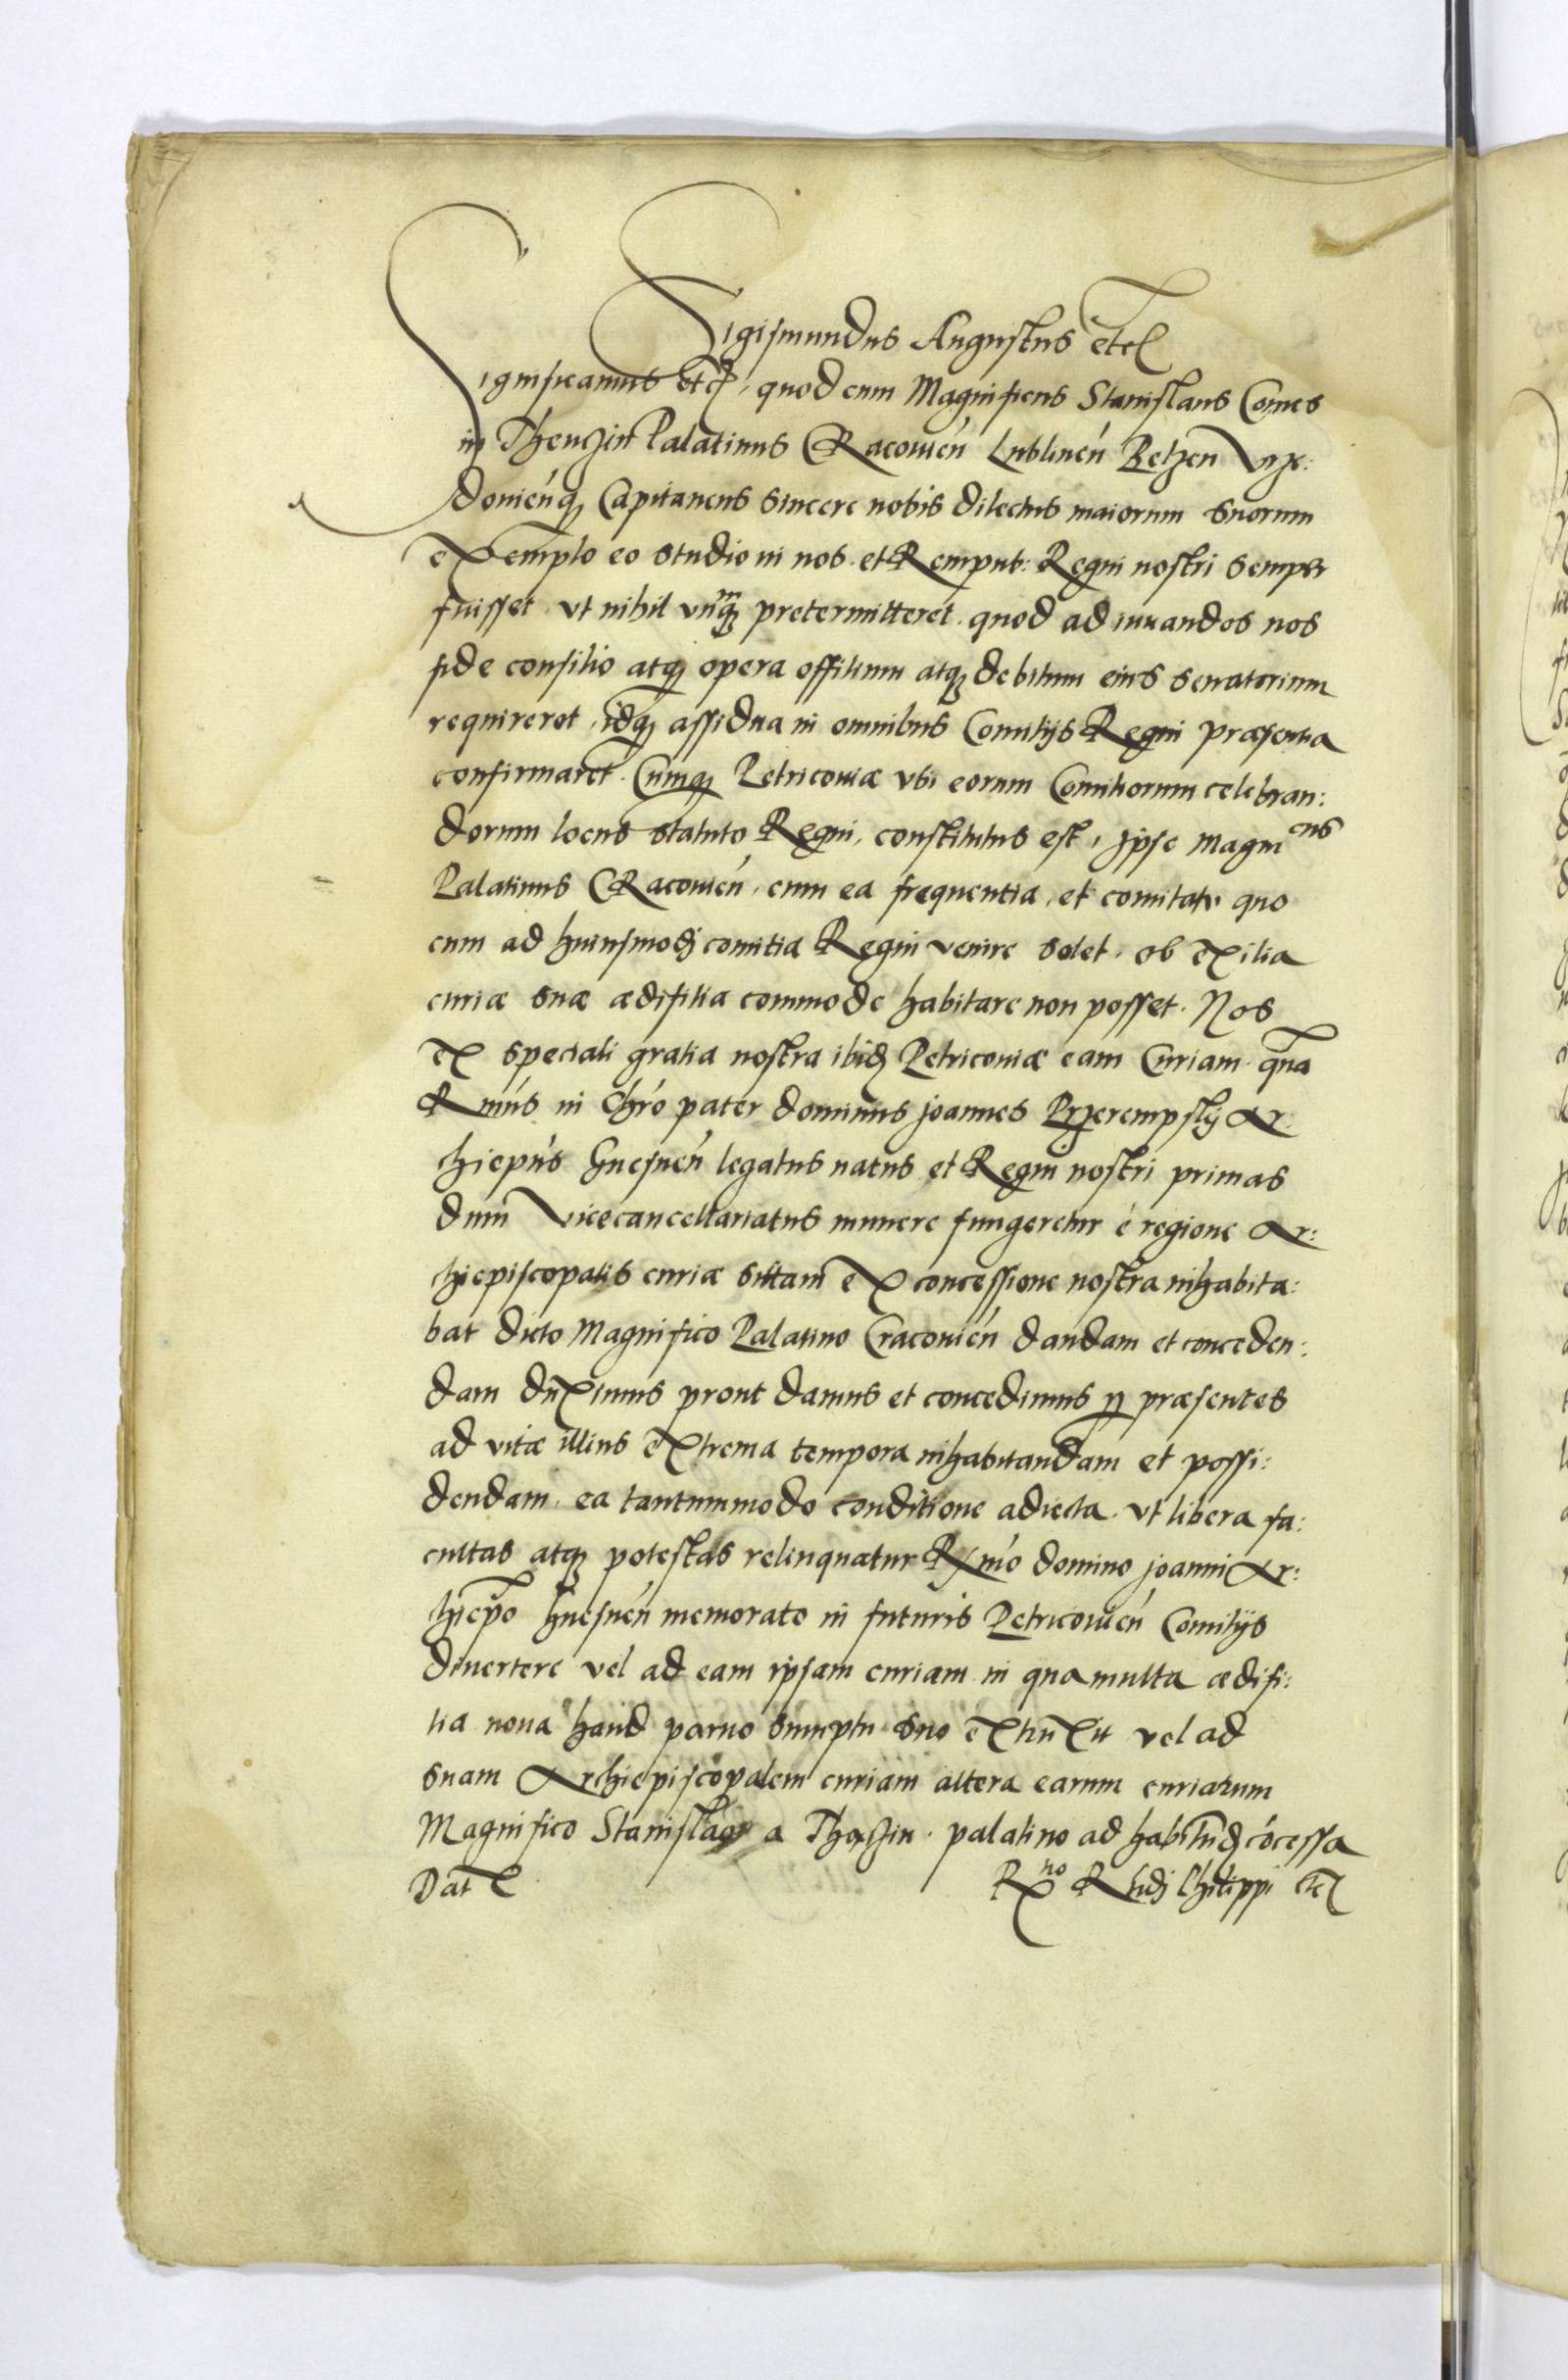 Sigismundus Augustus etc
Significamus etc, quod cum Magnificus Stanislaus Comes
in Thenczin Palatinus Cracouien̄ Lublinen̄ Belzen
douien̄q; Capitaneus sincere nobis dilectus maiorum suorum
exemplo eo studio in nos et Rempub: Regni nostri semper
fuisset vt nihil vnq̃ᵐ pretermitteret quod ad iuuandos nos
fide consilio atq; opera offitium atq; debitum eius senatorium
requireret, idq; assidua in omnibus Comitijs Regni præsentia
confirmaret. Cumq; Petricouiæ vbi eorum Comitiorum celebran:
dorum locus statuto Regni, constitutus est, Ipse Magniᶜᵘˢ
Palatinus Cracouien̄, cum ea frequentia, et comitatu quo
cum ad huiusmodj comitia Regni venire solet, ob exilia
curiæ suæ ædifitia commode habitare non posset. Nos
ex speciali gratia nostra ibid; Petricouiæ eam Curiam qua
Rm̄us in Chr̄o pater dominus Joannes Przerempskij Ar:
chiep̄us Gnesnen̄ legatus natus et Regni nostri primas
dum Vicecancellariatus munere fungeretur è regione Ar:
chiepiscopalis curiæ sittam ex concessione nostra inhabita:
bat dicto Magnifico Palatino Cracouien̄ dandam et conceden:
dam duximus prout damus et concedimus ꝑ præsentes
ad vitæ illius extrema tempora inhabitandam et possi:
dendam, ea tantummodo conditione adiecta, vt libera fa:
cultas atq; potestas relinquatur Rm̄o domino Joanni Ar:
chiep̄o Gnesnen̄ memorato in futuris Petricouien̄ Comitijs
diuertere vel ad eam ipsam curiam in qua multa ædifi:
tia noua haud paruo sumptu suo extruxit vel ad
suam Archiepiscopalem curiam altera earum curiarum
Magnifico Stanislao a Thenczin palatino ad habitand; cōcessa
Dat Rxⁿᵒ Rndj Philippi etc